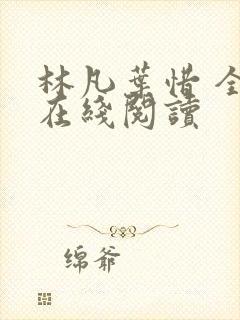 林凡葉惜 全
在綫閱讀
绵爷